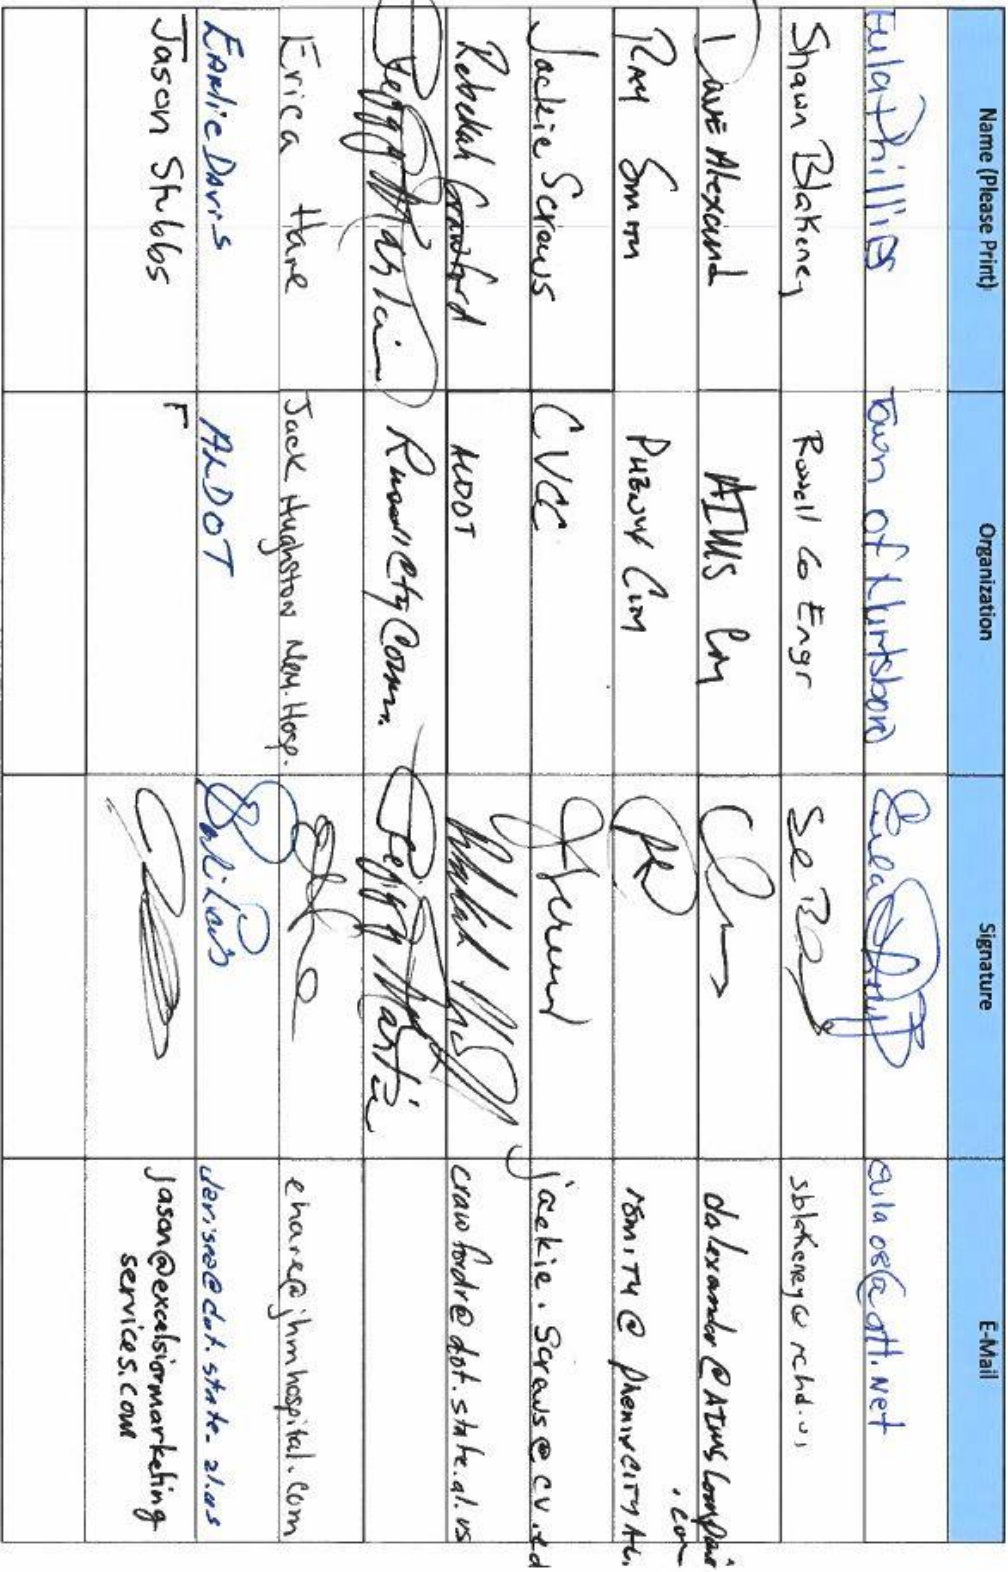 Name (Please Print) Organization Signature E-Mail
Eula Phillips Town of Hurtsboro eula08@att.net
Shawn Blakeney Russell Co Engr sblakeney@rchd.us
Dave Alexand AIMS dalexander@AIMScompani
.com
Ray Smith Phenix City rsmith@phenixcityal.
Jackie Screws CVCC jackie.screws@cv.ed
Rebekah Crawford ALDOT crawfordr@dot.state.al.us
Peggy Martin Russell Cty Comm. Peggy Martin
Erica Hare Jack Hughston Mem. Hosp. ehare@jhmhospital.com
Earlie Davis ALDOT davisea@dot.state.al.us
Jason Stubbs Jason@excelsiormarketing
services.com